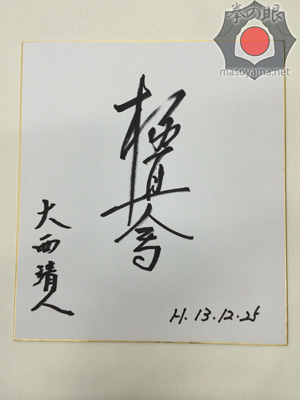 拳の眼
masoyama.net
極真會
大西靖人
H.13.12.25